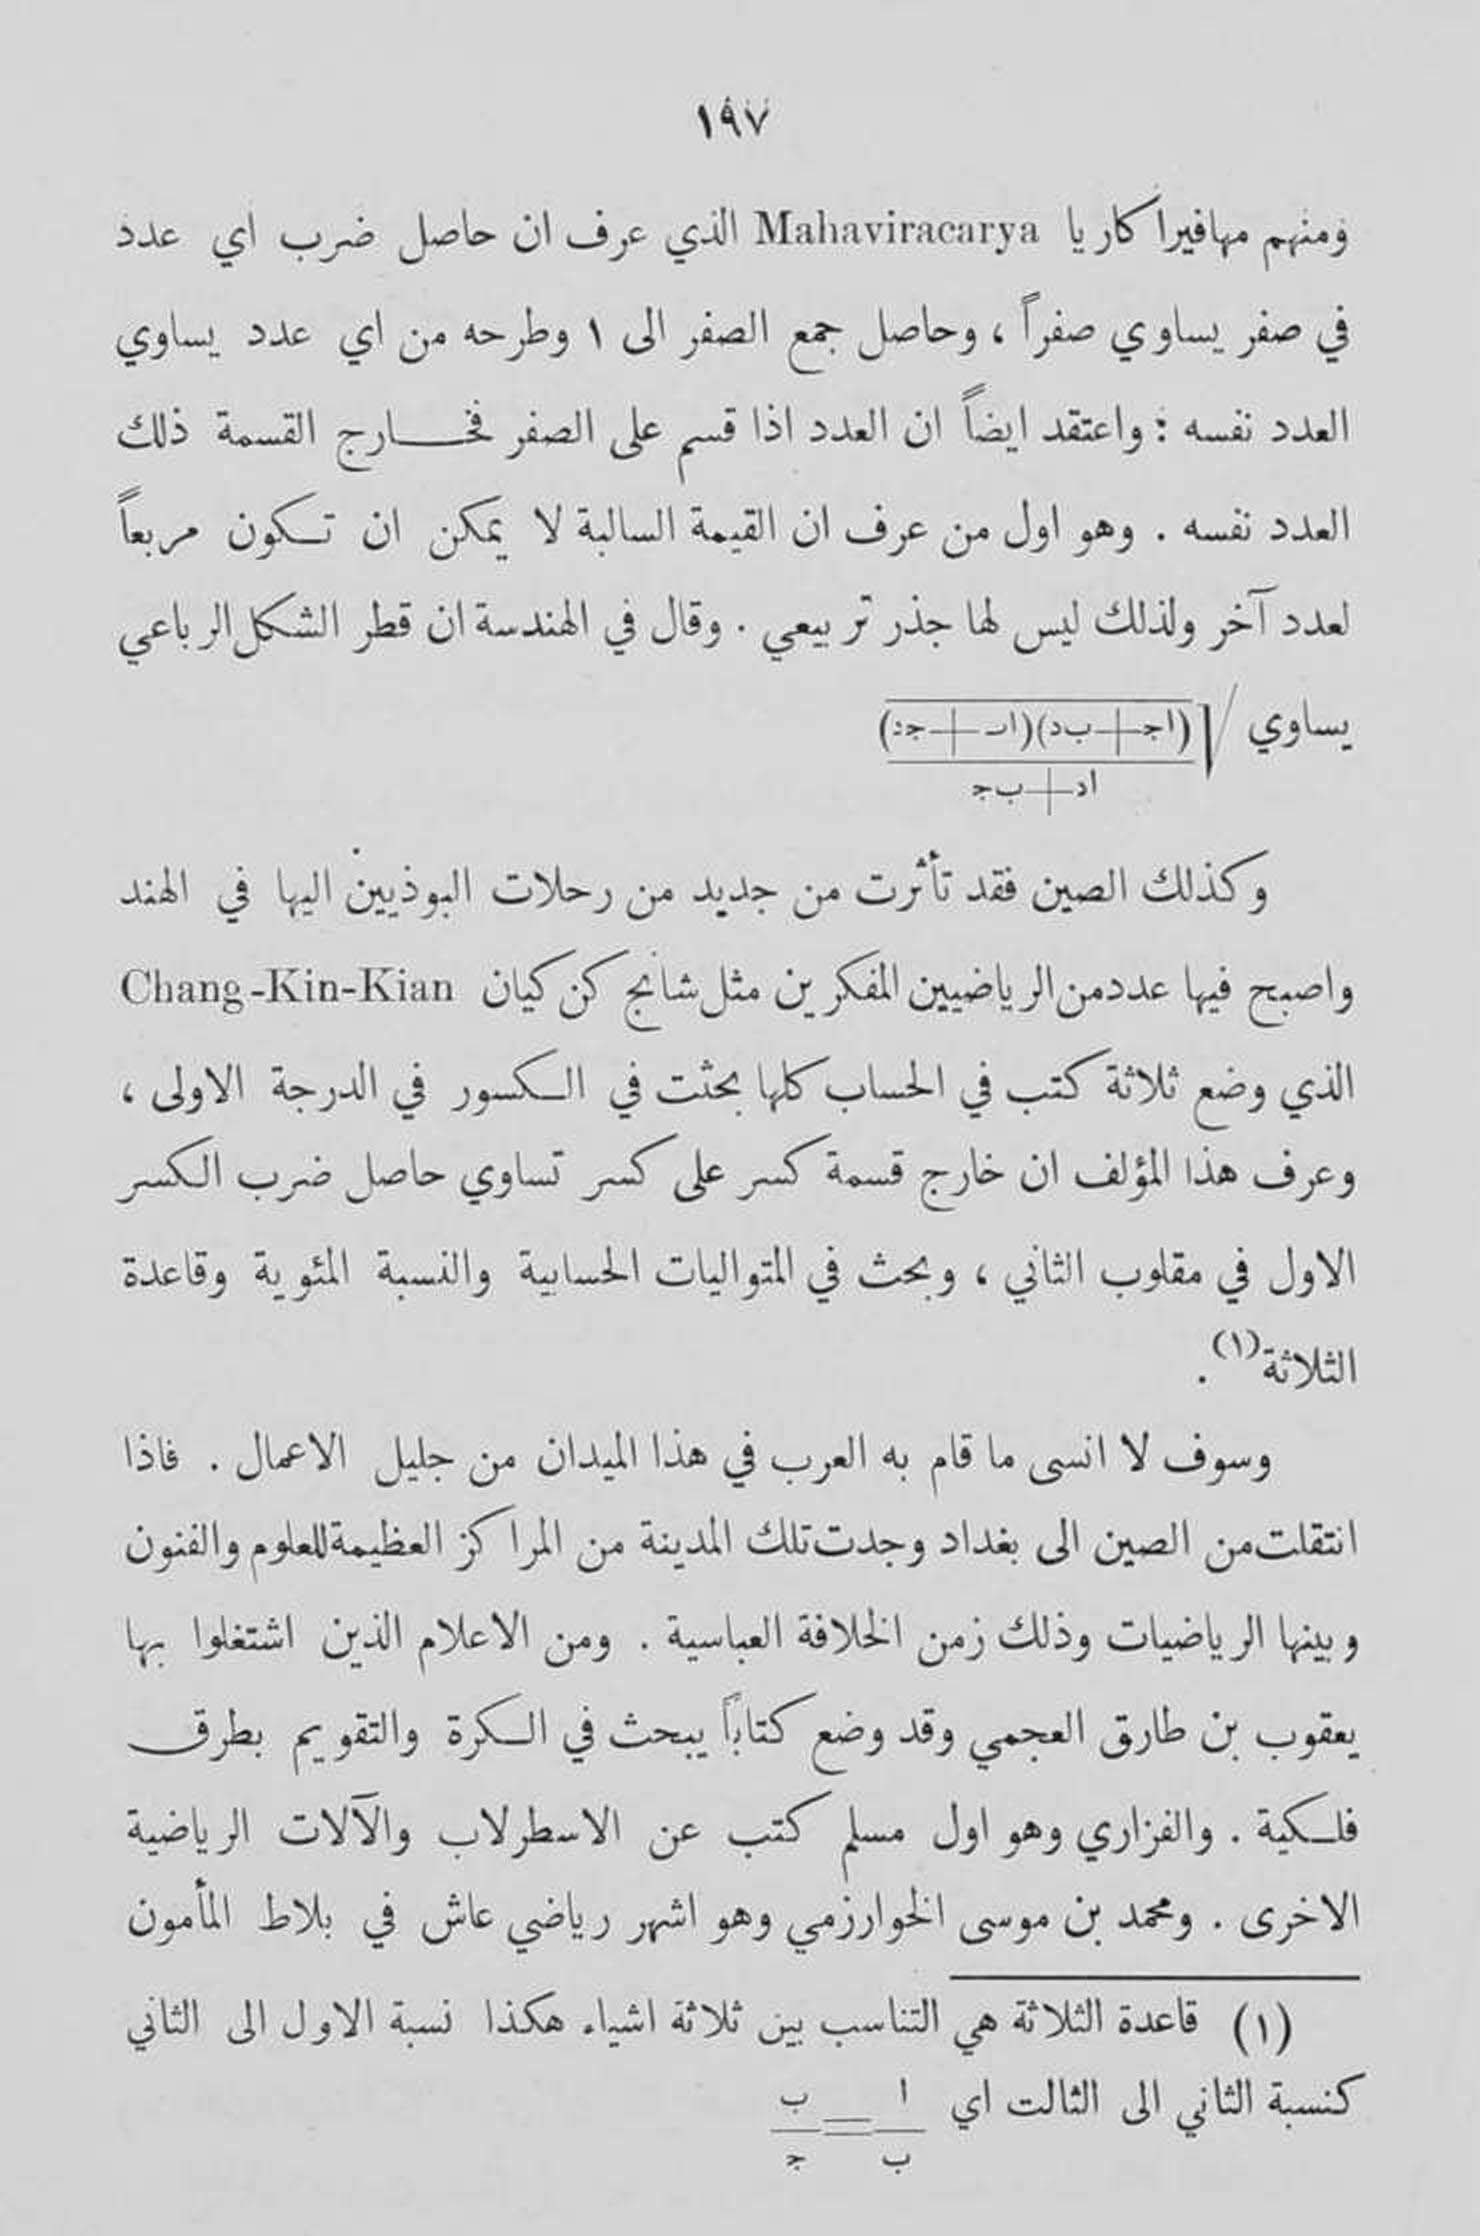 ١٩٧
ومنهم مهافيرا كاريا Mahaviracarya الذي عرف ان حاصل ضرب اي عدد
في صفر يساوي صفراً ، وحاصل جمع الصفر الى ١ وطرحه من اي عدد يساوي
العدد نفسه : واعتقد ايضاً ان العدد اذا قسم على الصفر فخـــارج القسمة ذلك
العدد نفسه . وهو اول من عرف ان القيمة السالبة لا يمكن ان تـكون مربعاً
لعدد آخر ولذلك ليس لها جذر تربيعي . وقال في الهندسة ان قطر الشكل الرباعي
يساوي √(اجـ + ب د)(اب + جد)
اد + ب جـ
وكذلك الصين فقد تأثرت من جديد من رحلات البوذيين اليها في الهند
واصبح فيها عدد من الرياضيين المفكرين مثل شانج كن كيان Chang-Kin-Kian
الذي وضع ثلاثة كتب في الحساب كلها بحثت في الـكسور في الدرجة الاولى ،
وعرف هذا المؤلف ان خارج قسمة كسر على كسر تساوي حاصل ضرب الكسر
الاول في مقلوب الثاني ، وبحث في المتواليات الحسابية والنسبة المئوية وقاعدة
الثلاثة (١) .
وسوف لا انسى ما قام به العرب في هذا الميدان من جليل الاعمال . فاذا
انتقلت من الصين الى بغداد وجدت تلك المدينة من المراكز العظيمة للعلوم والفنون
وبينها الرياضيات وذلك زمن الخلافة العباسية . ومن الاعلام الذين اشتغلوا بها
يعقوب بن طارق العجمي وقد وضع كتاباً يبحث في الـكرة والتقويم بطرق
فلـكية . والفزاري وهو اول مسلم كتب عن الاسطرلاب والآلات الرياضية
الاخرى . ومحمد بن موسى الخوارزمي وهو اشهر رياضي عاش في بلاط المأمون
(١) قاعدة الثلاثة هي التناسب بين ثلاثة اشياء هكذا نسبة الاول الى الثاني
كنسبة الثاني الى الثالت اي ا = ب
ب جـ